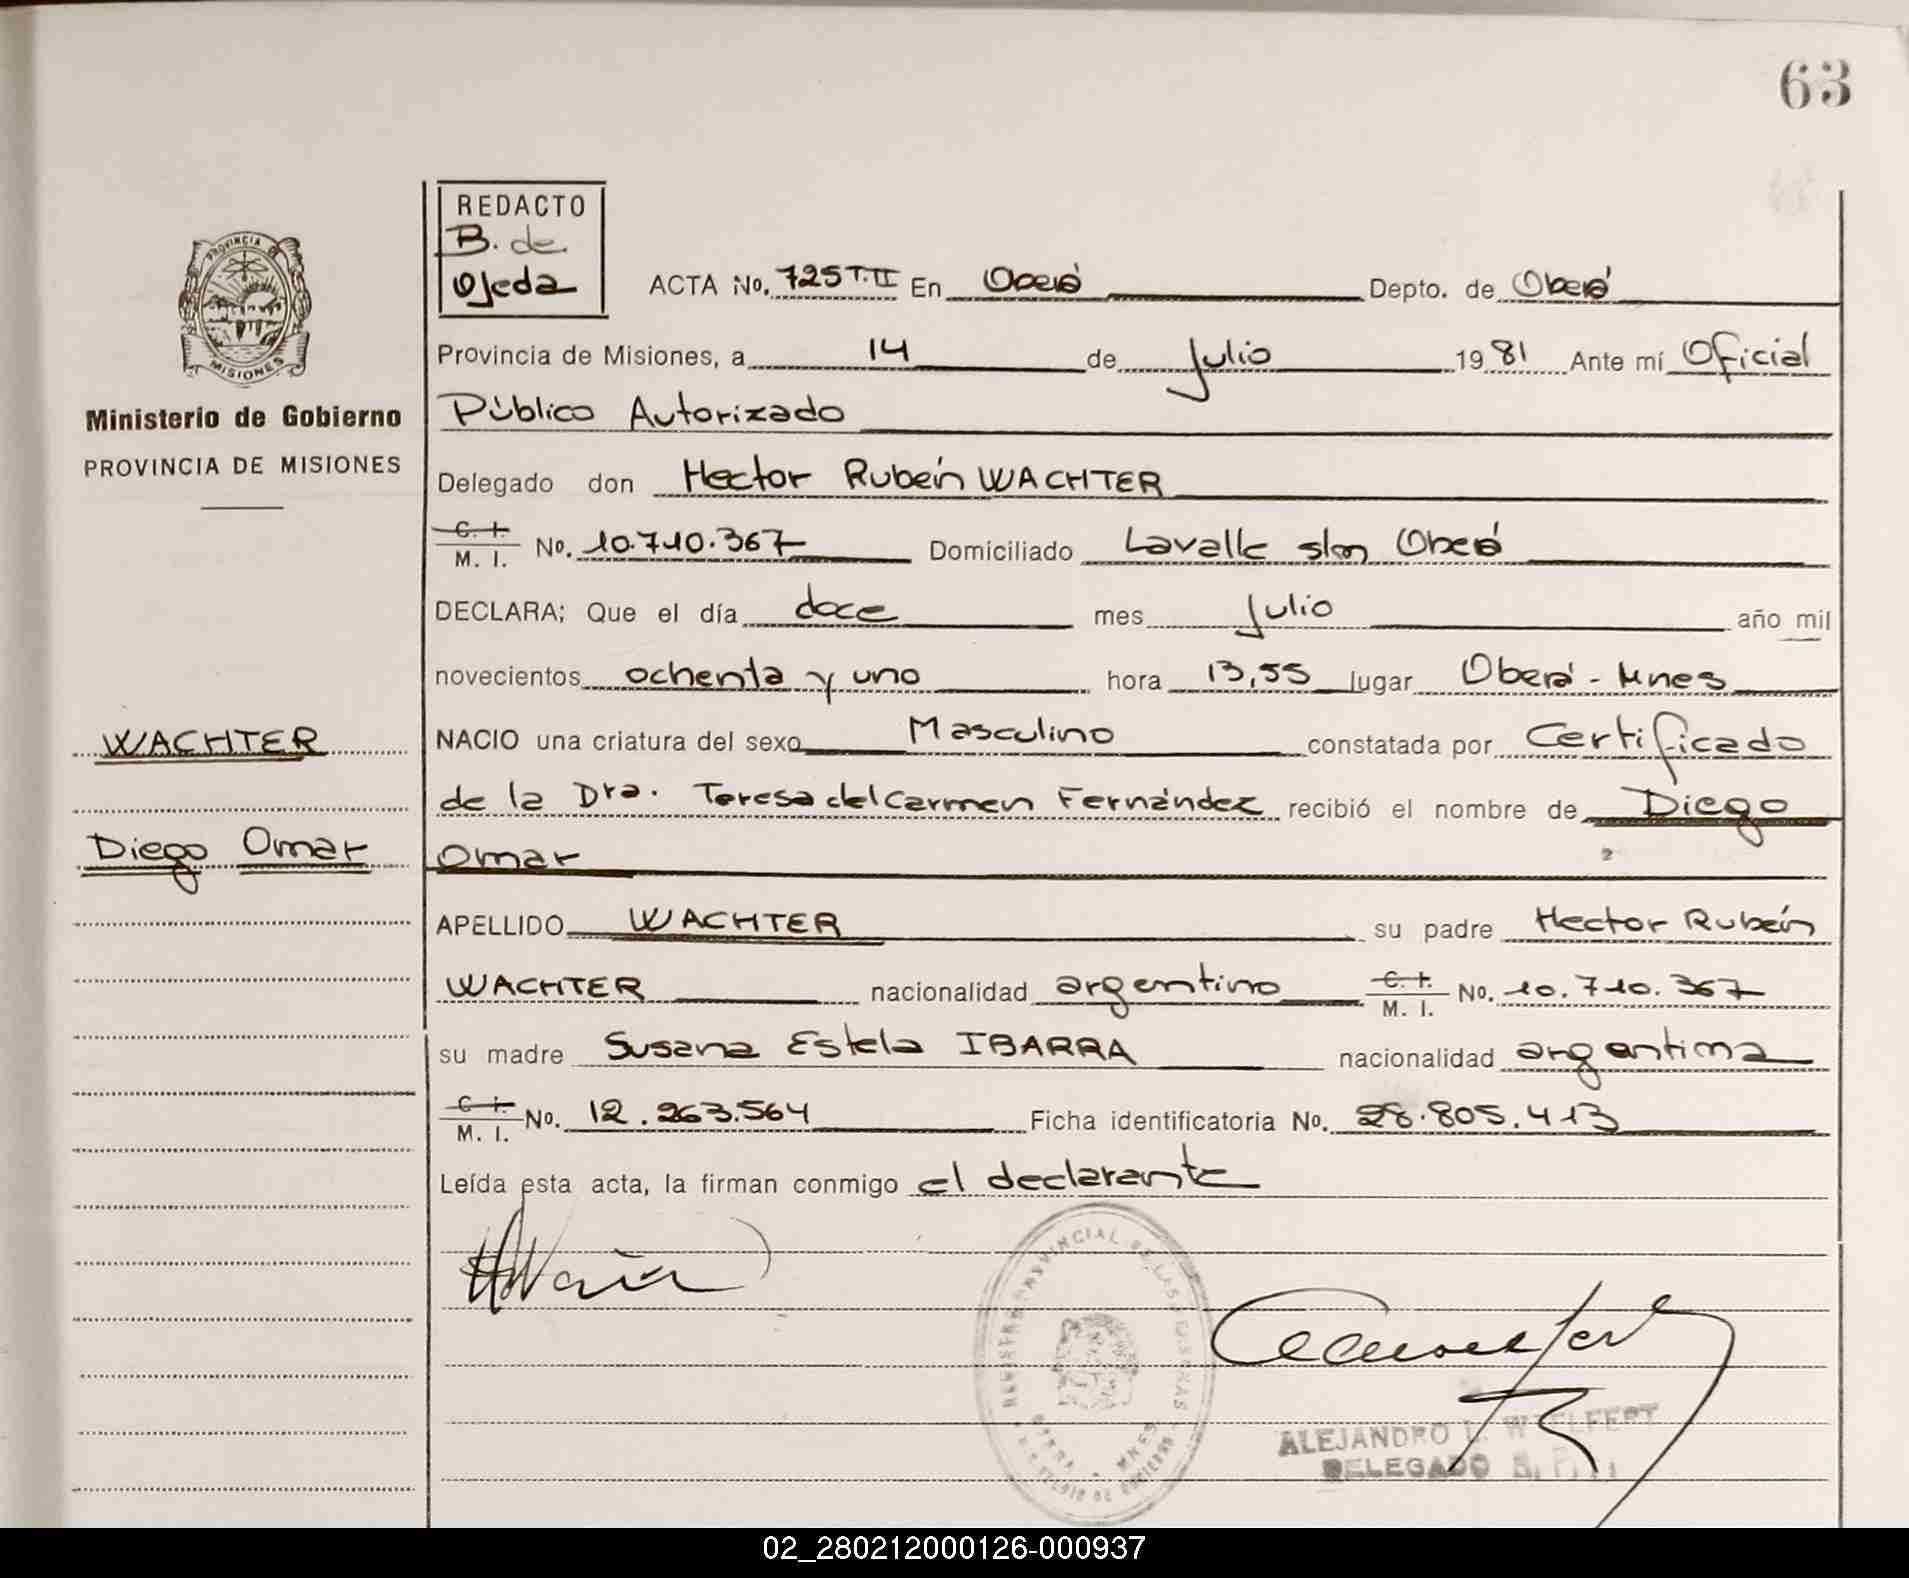 63
REDACTO
B. de
Ojeda
ACTA No. 725 T. II En Oberá Depto. de Oberá
PROVINCIA DE
MISIONES
Provincia de Misiones, a 14 de Julio 19 81 Ante mí Oficial
Ministerio de Gobierno
Público Autorizado
PROVINCIA DE MISIONES
Delegado don Hector Rubén WACHTER
C. I.
M. I. No. 10.710.367 Domiciliado Lavalle s/n Oberá
DECLARA; Que el día doce mes Julio año mil
novecientos ochenta y uno hora 13,55 lugar Oberá - Mnes
WACHTER
NACIO una criatura del sexo Masculino constatada por Certificado
de la Dra. Teresa del Carmen Fernández recibió el nombre de Diego
Diego Omar
Omar
APELLIDO WACHTER su padre Hector Rubén
WACHTER nacionalidad argentino C. I.
M. I. No. 10.710.367
su madre Susana Estela IBARRA nacionalidad argentina
C. I.
M. I. No. 12.263.564 Ficha identificatoria No. 28.805.413
Leída esta acta, la firman conmigo el declarante
REGISTRO PROVINCIAL DE LAS PERSONAS
MNES
ALEJANDRO L. WELFERT
DELEGADO R. P.
02_280212000126-000937